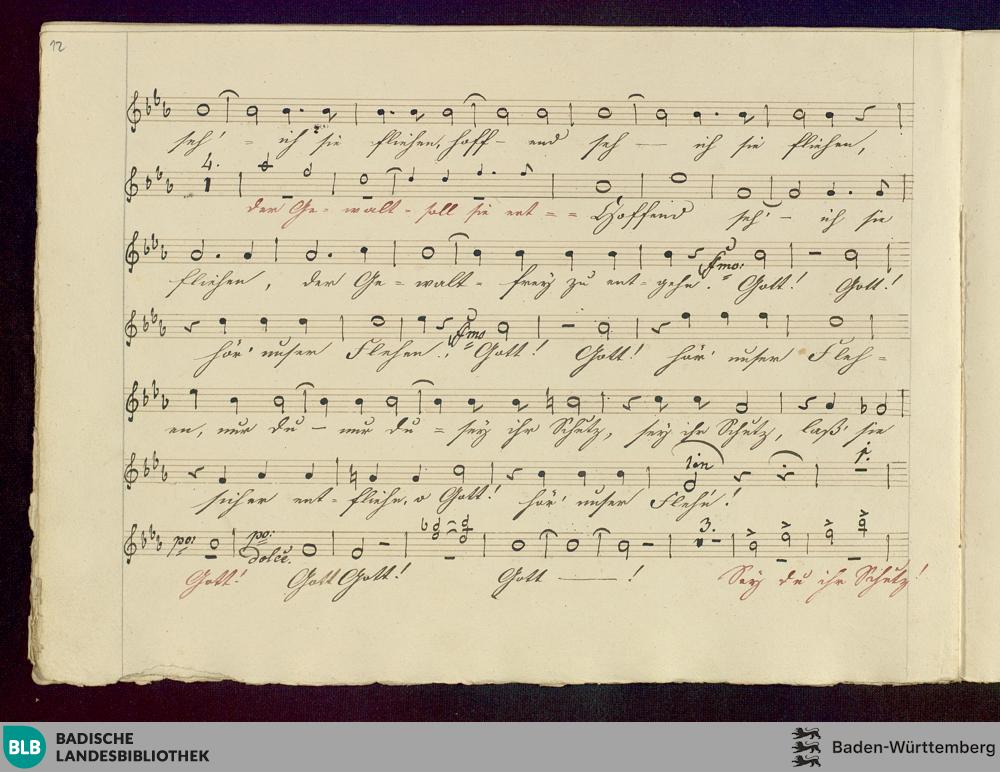 12
seh' - ich sie fliehen, hoffend seh — ich sie fliehen,
4.
1
der Ge- walt- soll sie ent = = Hoffend seh' - ich, sie
fmo:
fliehen, der Ge- walt- frey zu ent- gehn'. Gott! Gott!
fmo
hör' unser Flehen! Gott! Gott! hör' unser Fleh =
en, nur du - nur du = sey ihr Schutz, sey ihr Schutz, laß' sie
1.
sicher ent- fliehn, o Gott! hör' unser Flehn'!
po: po: dolce. 3.
Gott! Gott Gott! Gott — ! Sey du ihr Schutz!
BLB BADISCHE
LANDESBIBLIOTHEK
Baden-Württemberg